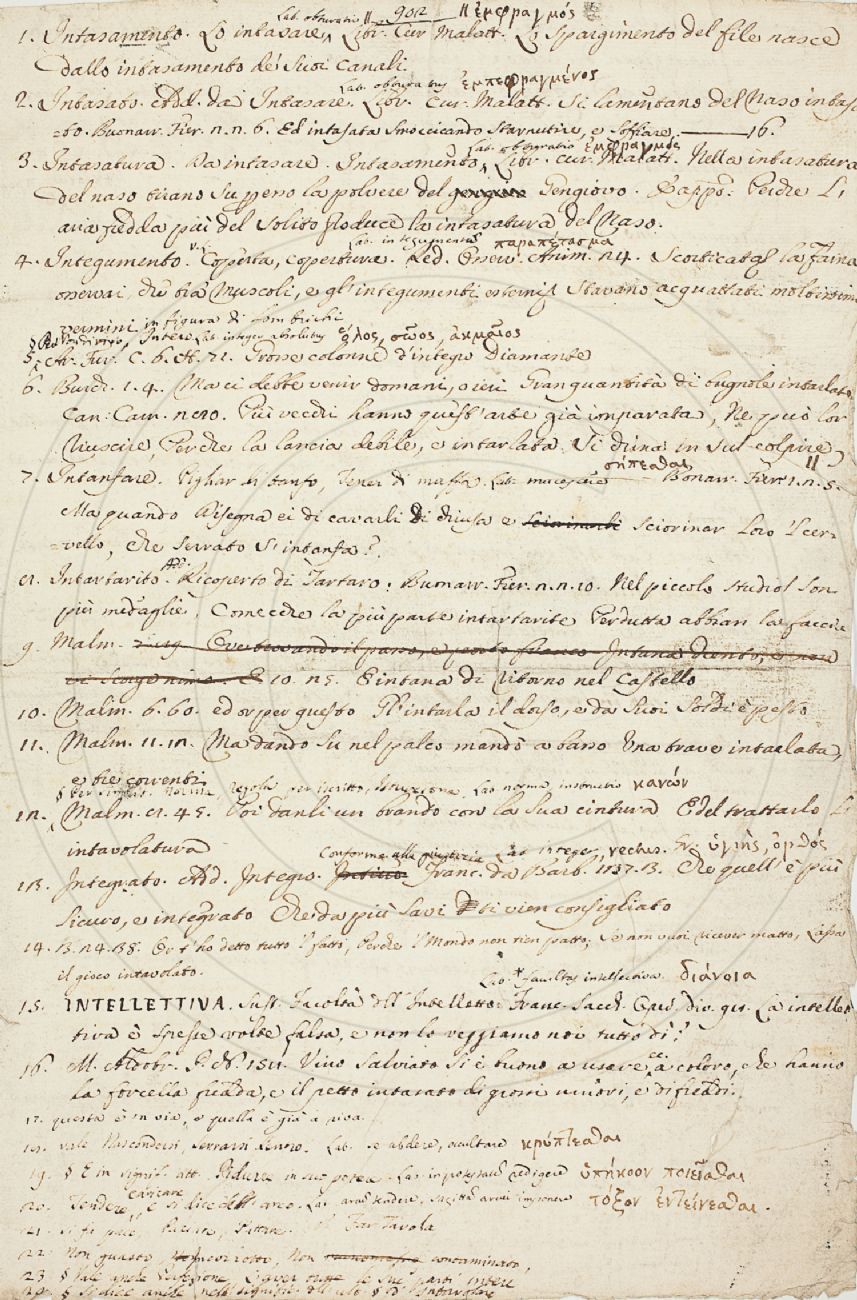 Lat. obturatio || 902 || ἐμφραγμός
1. Intasamento. Lo intasare, Libr. Cur. Malatt. Lo Spargimento del fiele nasce
dallo intasamento de' suoi canali.
Lat. obturatus ἐμπεφραγμένος
2. Intasato. Add. da Intasare. Libr. Cur. Malatt. Si lamentano del Naso intasa
=to. Buonarr. Fier. 2. 2. 6. Ed intasata Smoccicando Starnutire, e Soffiare. 16.
Lat. obturatio ἐμφραγμός
3. Intasatura. Da intasare. Intasamento, Libr. cur. Malatt. Nella intasatura
del naso tirano Su per la polvere del Gengiovo. Perche L'
aria fredda più del Solito produce la intasatura del Naso.
Lat. integumentum παραπέτασμα
4. Integumento. v. L. Coperta, copertura. Red. Osserv. Anim. 24. Scorticata la Faina
osservai, che tra' Muscoli, e gl' integumenti esterni Stavano acquattati moltissimi
vermini in figura di lombrichi
Intero Lat. integer, absolutus ὅλος, σῶος, ἀκμαῖος
5. Ar. Fur. C. 6. 71. Grosse colonne d'integro Diamante
6. Burch. 1. 4. Ma ci debbe venir domani, o ieri Gran quantità di bugnole intarlate.
Can. Carn. Più vecchi hanno quest'arte già imparata, Ne può lor
riuscire, Perche la lancia debile, e intarlata Si in Sul colpire,
σήπεσθαι ||
7. Intanfare. Pigliar di tanfo, Tener di muffa. Lat. Bonarr. Fier. 1. 2. 5.
Ma quando Disegna ei di cavarli Di chiusa e Sciorinar Loro 'l cer=
=vello, che Serrato S'intanfa?
Add.
8. Intartarito. Ricoperto di Tartaro. Buonarr. Fier. 2. 2. 10. Nel piccolo Studiol Son
più medaglie, Comecche la più parte intartarite Perduta abbian la faccia
9. Malm. 10. 25. E intana di ritorno nel Castello
10. Malm. 6. 60. ed or per questo Gl'intarla il dosso, e da Suoi Soldi è pesto
11. Malm. 11. 12. Ma dando Su nel palco mandò a basso Una trave intarlata,
e tre correnti
Norma, regola per Scritto, Istruzione. Lat. norma, instructio κανών
12. Malm. 8. 45. Poi danli un brando con la Sua cintura E del trattarlo L'
intavolatura
Conforme alla giustizia Lat. integer, rectus. Gr. ὑγιής, ὀρθός
13. Integrato. Add. Integro. Franc. da Barb. 137. 13. Che quell' è più
Sicuro, e integrato Che da più Savi ti vien consigliato
14. B. 24. 38. Or t'ho detto tutto 'l fatto, Perche 'l Mondo non tien patto; Se non vuoi ricever matto, Lassa
il gioco intavolato.
Lat. facultas intellectiva διάνοια
15. INTELLETTIVA. Sust. Facoltà dell' Intelletto. Franc. Sacch. Op. div. La intellet
tiva è Spesse volte falsa, e non lo veggiamo noi tutto dì?
16. M. Aldobr. P. N. 151. Vino Salviato Si è buono a usare a coloro, che hanno
la forcella fredda, e il petto intasato di grossi umori, e di freddi.
17. questa è in via, e quella è già a riva.
18. vale Nascondersi, Serrarsi dentro. Lat. se abdere, occultare κρύπτεσθαι
19. § E in signif. att. Ridurre in sua potestà. Lat. in potestatem redigere ὑπήκοον ποιεῖσθαι
caricare
20. Tendere, e si dice dell' arco. Lat. arcum tendere, sagittam arcui imponere τόξον ἐντείνεσθαι.
21. si fa pace, Tavola
22. Non guasto Incorrotto, Non contaminato,
23. § Vale anche Perfezione, L'aver le Sue parti intere
24. § Si dice anche nell' signific.